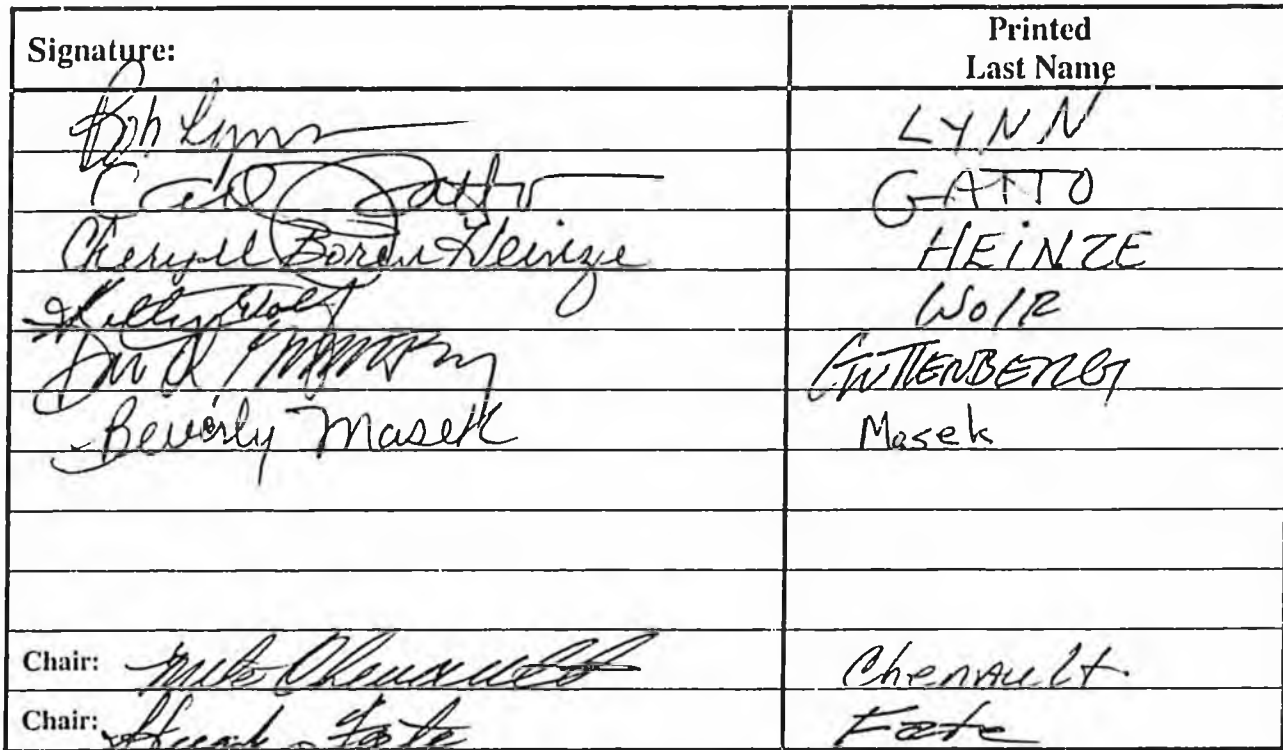 Signature: Printed Last Name
Bob Lynn LYNN
Carl Gatto GATTO
Cheryll Boren Heinze HEINZE
Kelly Wolf Wolf
David GUTTENBERG
Beverly Masek Masek
Chair: Mike Chenault Chenault
Chair: Hugh Fate Fate